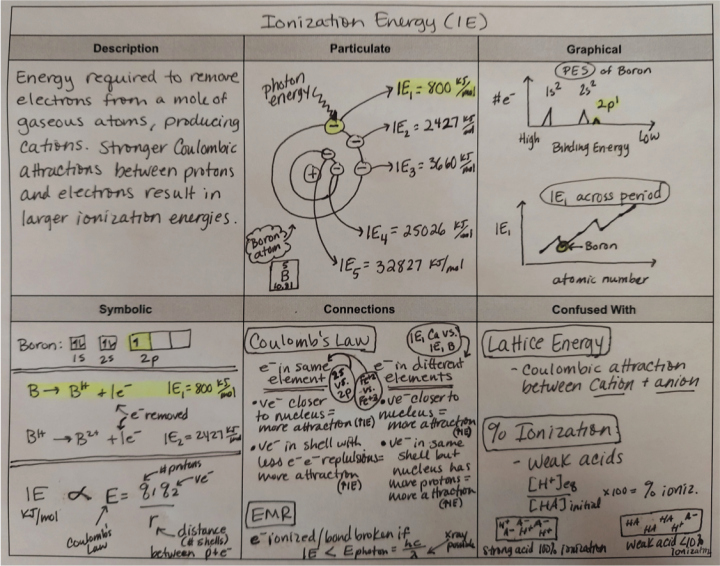 Ionization Energy (IE)
Description
Energy required to remove
electrons from a mole of
gaseous atoms, producing
cations. Stronger Coulombic
attractions between protons
and electrons result in
larger ionization energies.
Particulate
photon
energy
IE₁ = 800 kJ/mol
IE₂ = 2427 kJ/mol
IE₃ = 3660 kJ/mol
IE₄ = 25026 kJ/mol
IE₅ = 32827 kJ/mol
Boron
atom
5
B
10.81
Graphical
PES of Boron
#e⁻
1s²
2s²
2p¹
High
Low
Binding Energy
IE₁ across period
IE₁
Boron
atomic number
Symbolic
Boron:
1s
2s
2p
B → B¹⁺ + 1e⁻ IE₁ = 800 kJ/mol
e⁻ removed
B¹⁺ → B²⁺ + 1e⁻ IE₂ = 2427 kJ/mol
# protons
IE ∝ E = q₁q₂ ve⁻
kJ/mol
r
Coulomb's
Law
distance
(# shells)
between p+e⁻
Connections
Coulomb's Law
IE₁ Ca vs.
IE₁ B
e⁻ in same
element
2s
vs.
2p
Fe⁺²
vs.
Fe⁺³
e⁻ in different
elements
• ve⁻ closer
to nucleus =
more attraction (↑IE)
• ve⁻ in shell with
less e⁻e⁻ replulsions =
more attraction
(↑IE)
• ve⁻ closer to
nucleus =
more attraction
(↑IE)
• ve⁻ in same
shell but
nucleus has
more protons =
more attraction
(↑IE)
EMR
e⁻ ionized/bond broken if
IE < Ephoton = hc/λ
x-ray
possible
Confused With
Lattice Energy
- Coulombic attraction
between cation + anion
% Ionization
- weak acids
[H⁺]eq
[HA] initial
x100 = % ioniz.
H⁺ A⁻ A⁻
A⁻ H⁺ H⁺
strong acid 100% ionization
HA HA HA A⁻
HA H⁺
weak acid <10%
ionization